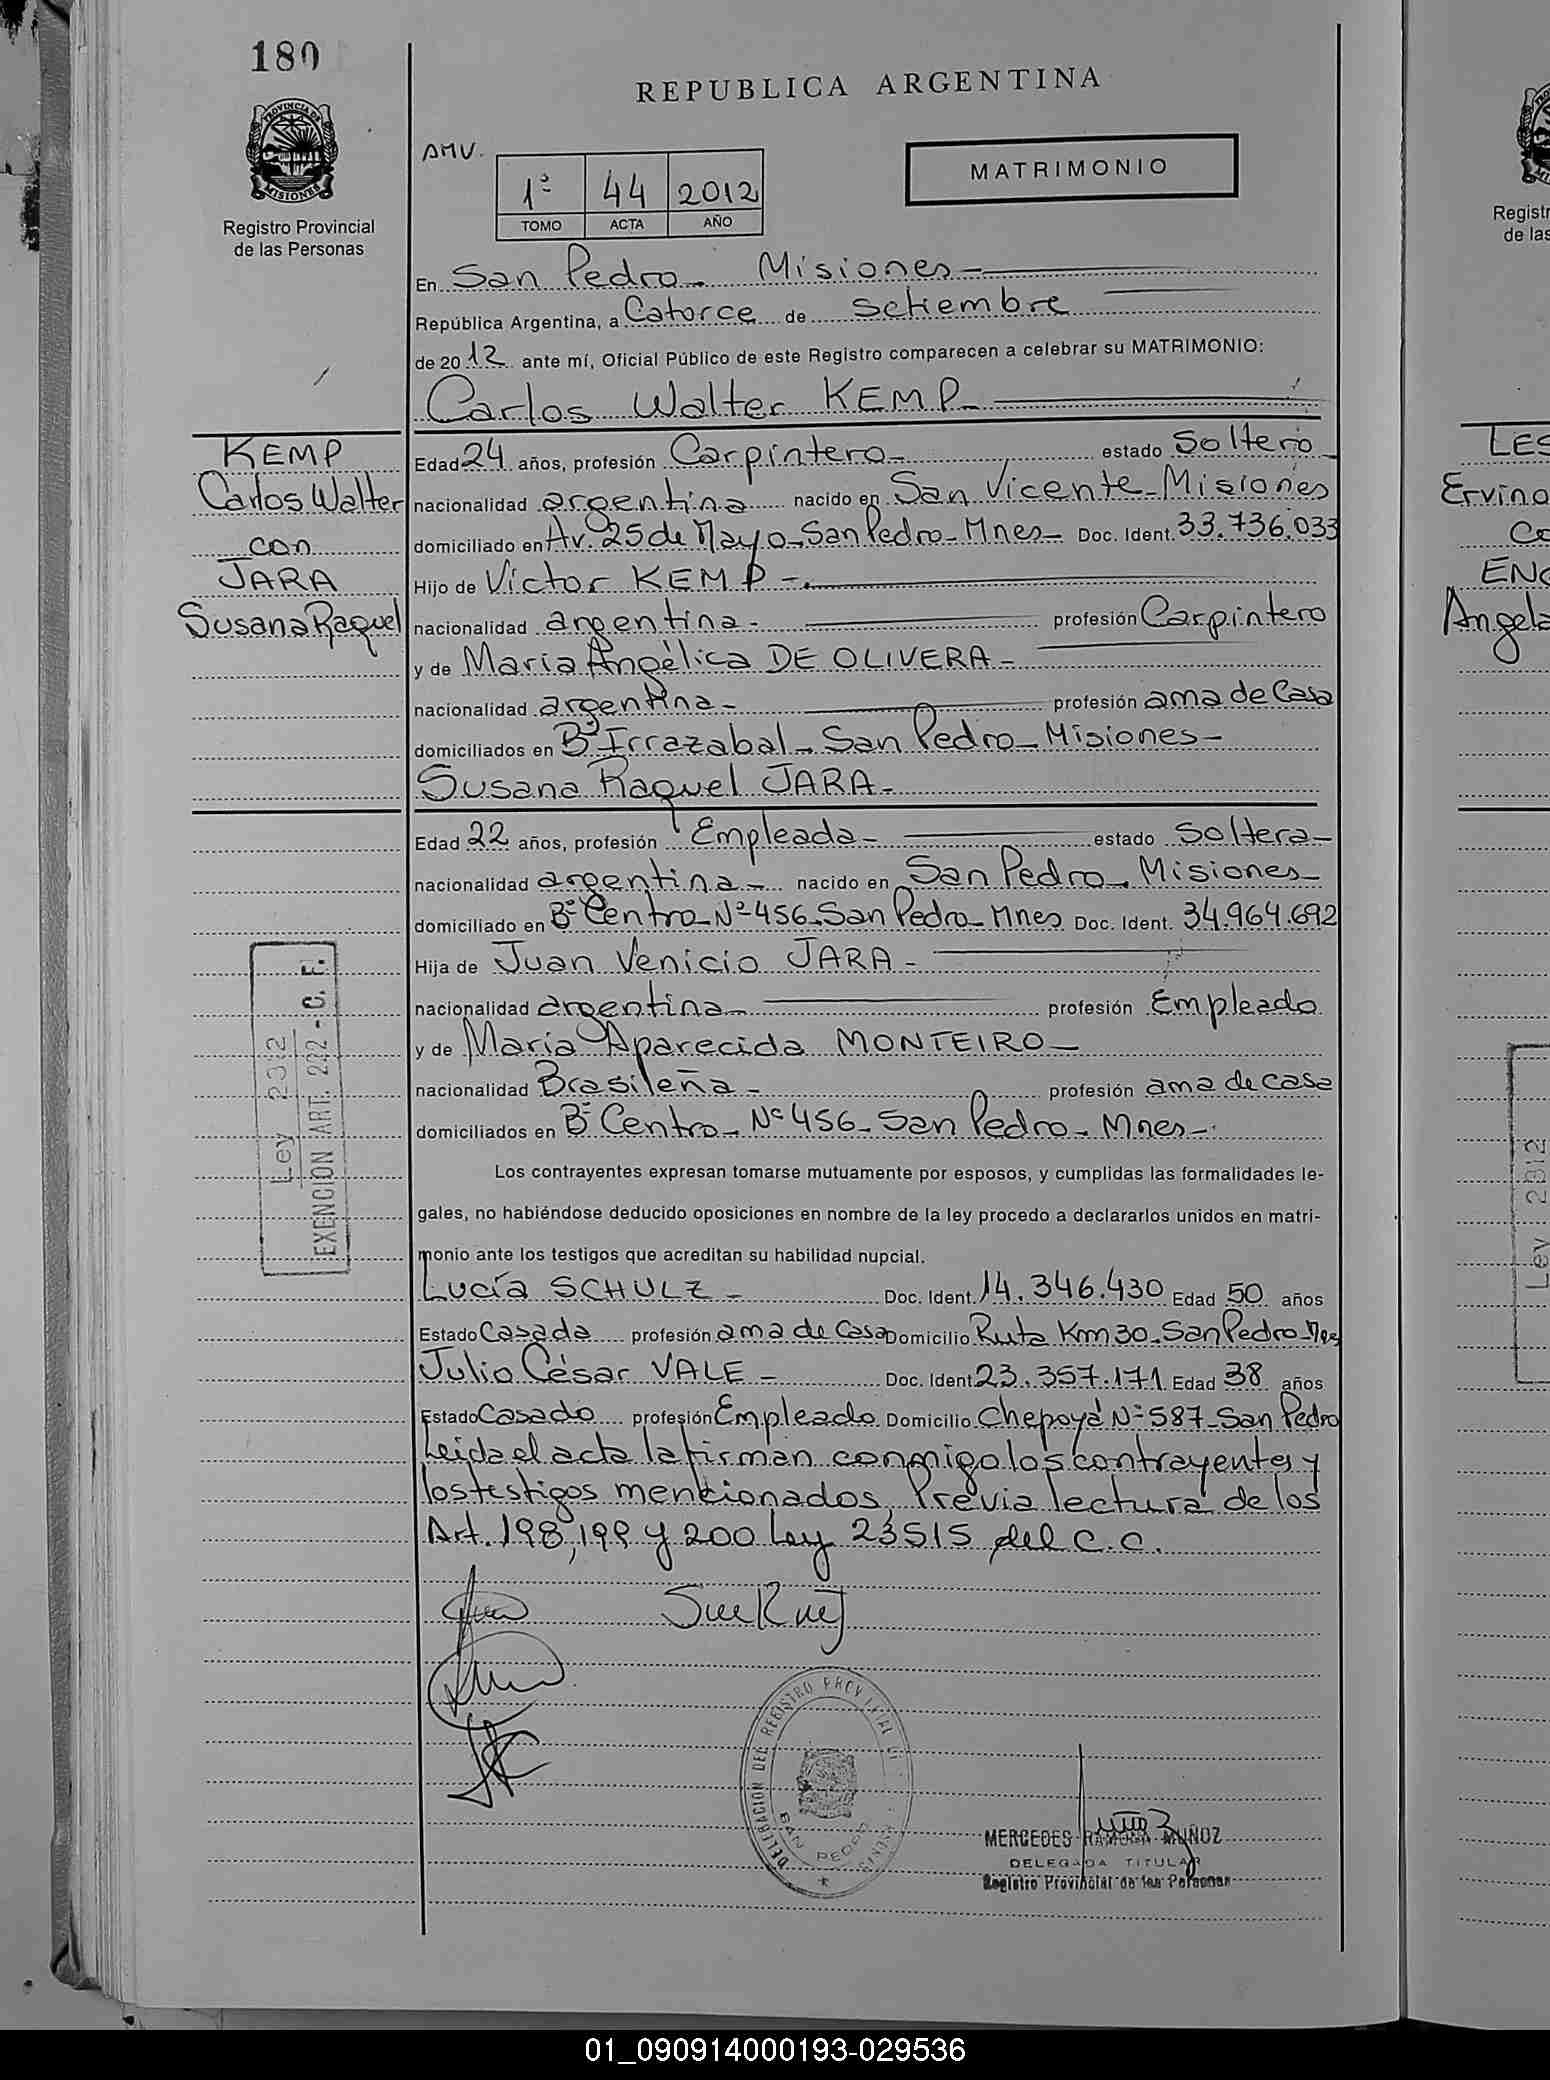 180
REPUBLICA ARGENTINA
PROVINCIA DE
MISIONES
Registro Provincial
de las Personas
AMV.
1º 44 2012
TOMO ACTA AÑO
MATRIMONIO
En San Pedro - Misiones -
República Argentina, a Catorce de Setiembre
de 2012 ante mí, Oficial Público de este Registro comparecen a celebrar su MATRIMONIO:
Carlos Walter KEMP -
KEMP
Carlos Walter
con
JARA
Susana Raquel
Edad 24 años, profesión Carpintero - estado Soltero
nacionalidad argentina nacido en San Vicente - Misiones
domiciliado en Av. 25 de Mayo - San Pedro - Mnes - Doc. Ident. 33.736.033
Hijo de Victor KEMP -
nacionalidad argentina - profesión Carpintero
y de María Angélica DE OLIVERA -
nacionalidad argentina - profesión ama de Casa
domiciliados en Bº Irrazabal - San Pedro - Misiones -
Susana Raquel JARA -
Edad 22 años, profesión Empleada - estado Soltera -
nacionalidad argentina - nacido en San Pedro - Misiones -
domiciliado en Bº Centro - Nº 456 - San Pedro - Mnes Doc. Ident. 34.964.692
Hija de Juan Venicio JARA -
nacionalidad argentina - profesión Empleado
y de María Aparecida MONTEIRO -
nacionalidad Brasileña - profesión ama de casa
domiciliados en Bº Centro - Nº 456 - San Pedro - Mnes -
Ley 2312
EXENCION ART. 222 - C. F.
Los contrayentes expresan tomarse mutuamente por esposos, y cumplidas las formalidades le-
gales, no habiéndose deducido oposiciones en nombre de la ley procedo a declararlos unidos en matri-
monio ante los testigos que acreditan su habilidad nupcial.
Lucía SCHULZ - Doc. Ident. 14.346.430 Edad 50 años
Estado Casada profesión ama de Casa Domicilio Ruta Km 30 - San Pedro - Mnes
Julio César VALE - Doc. Ident. 23.357.171 Edad 38 años
Estado Casado profesión Empleado Domicilio Chepoyá Nº 587 - San Pedro
Leida el acta la firman conmigo los contrayentes y
los testigos mencionados, Previa lectura de los
Art. 198, 199 y 200 Ley 23515 del C.C.
DELEGACION DEL REGISTRO PROVINCIAL
SAN PEDRO
MERCEDES RAMONA MUÑOZ
DELEGADA TITULAR
Registro Provincial de las Personas
Registr
de las
LES
Ervino
Co
ENG
Angela
Ley 2312
01_090914000193-029536